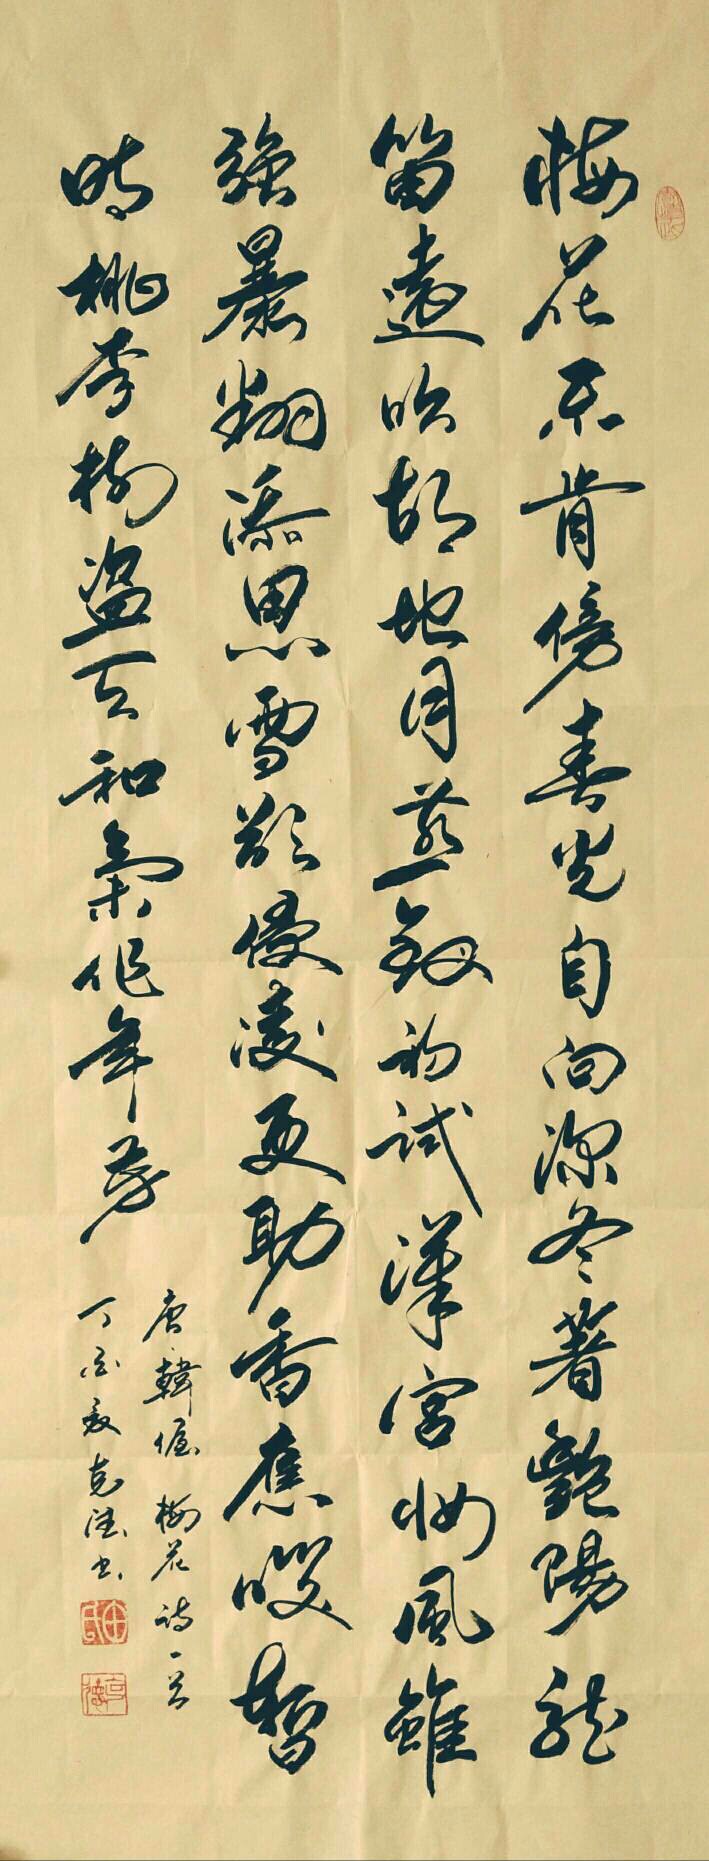 梅花不肯傍春光自向深冬著艷陽龍
笛遠吹胡地月燕釵初試漢宮妝風雖
強暴翻添思雪欲侵凌更助香應咲暫
時桃李樹盜天和氣作年芳
唐韓偓梅花詩一首
丁酉夏克德书